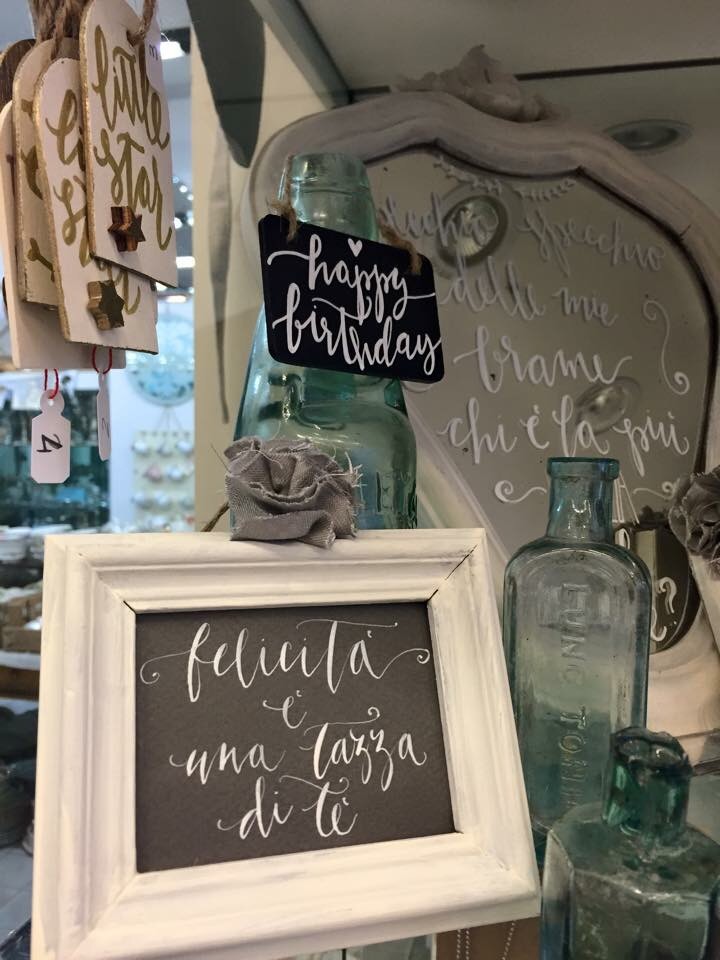 little
star
happy
birthday
specchio
delle mie
brame
chi è la più
felicità
è
una tazza
di tè
LUNG TONIC